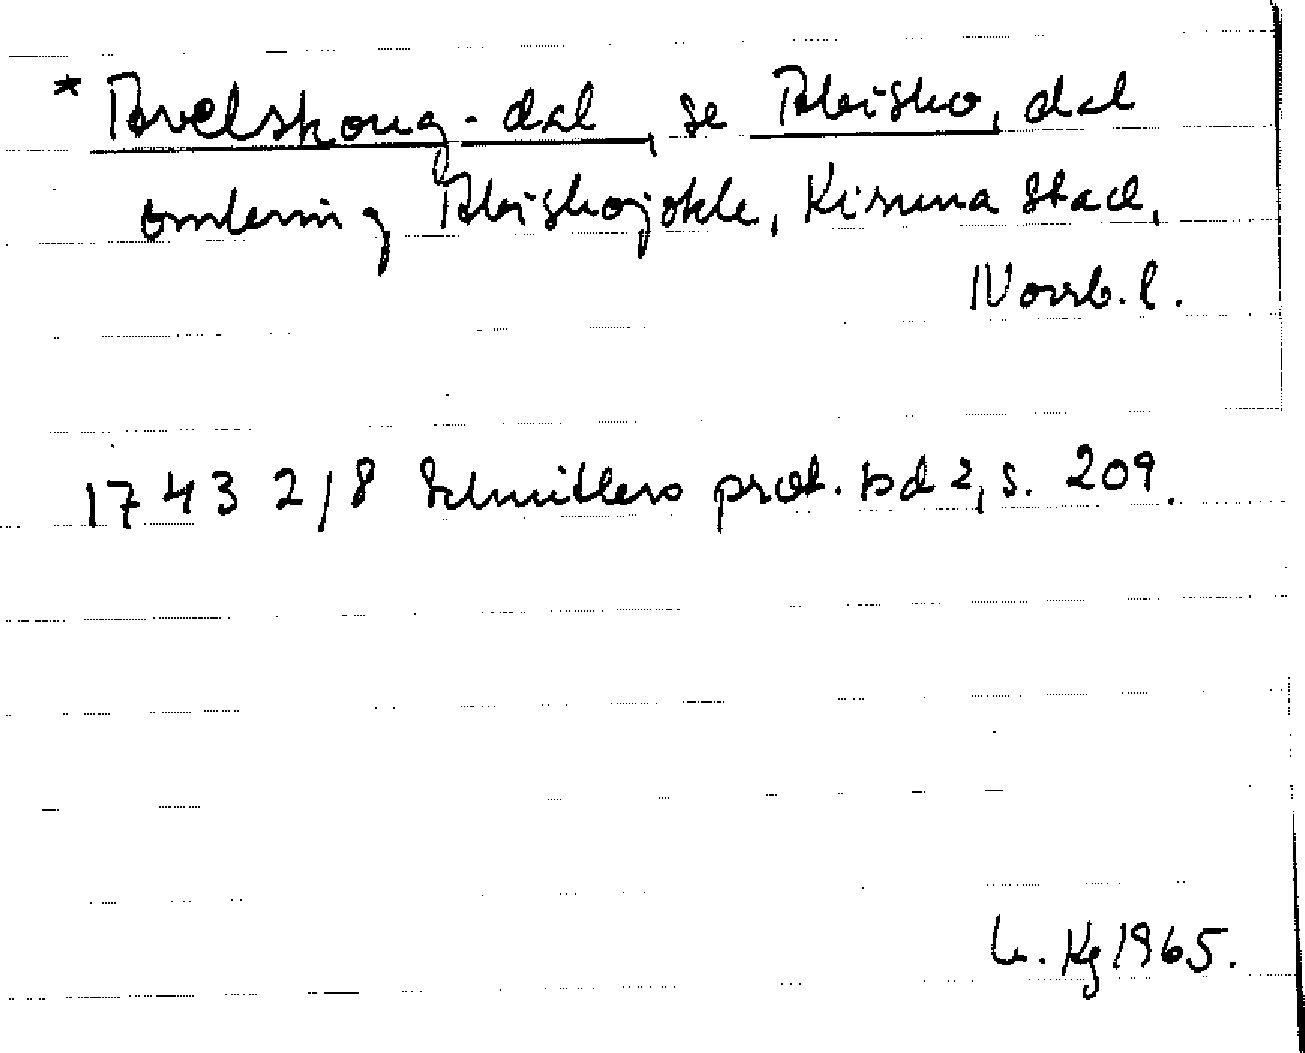 * Avelskoug-dal, se Abisko, dal
omkring Abiskojokk, Kiruna Stad,
Norrb. l.
1743 2/8 Schnitlers prot. bd 2, s. 209.
Kg 1965.